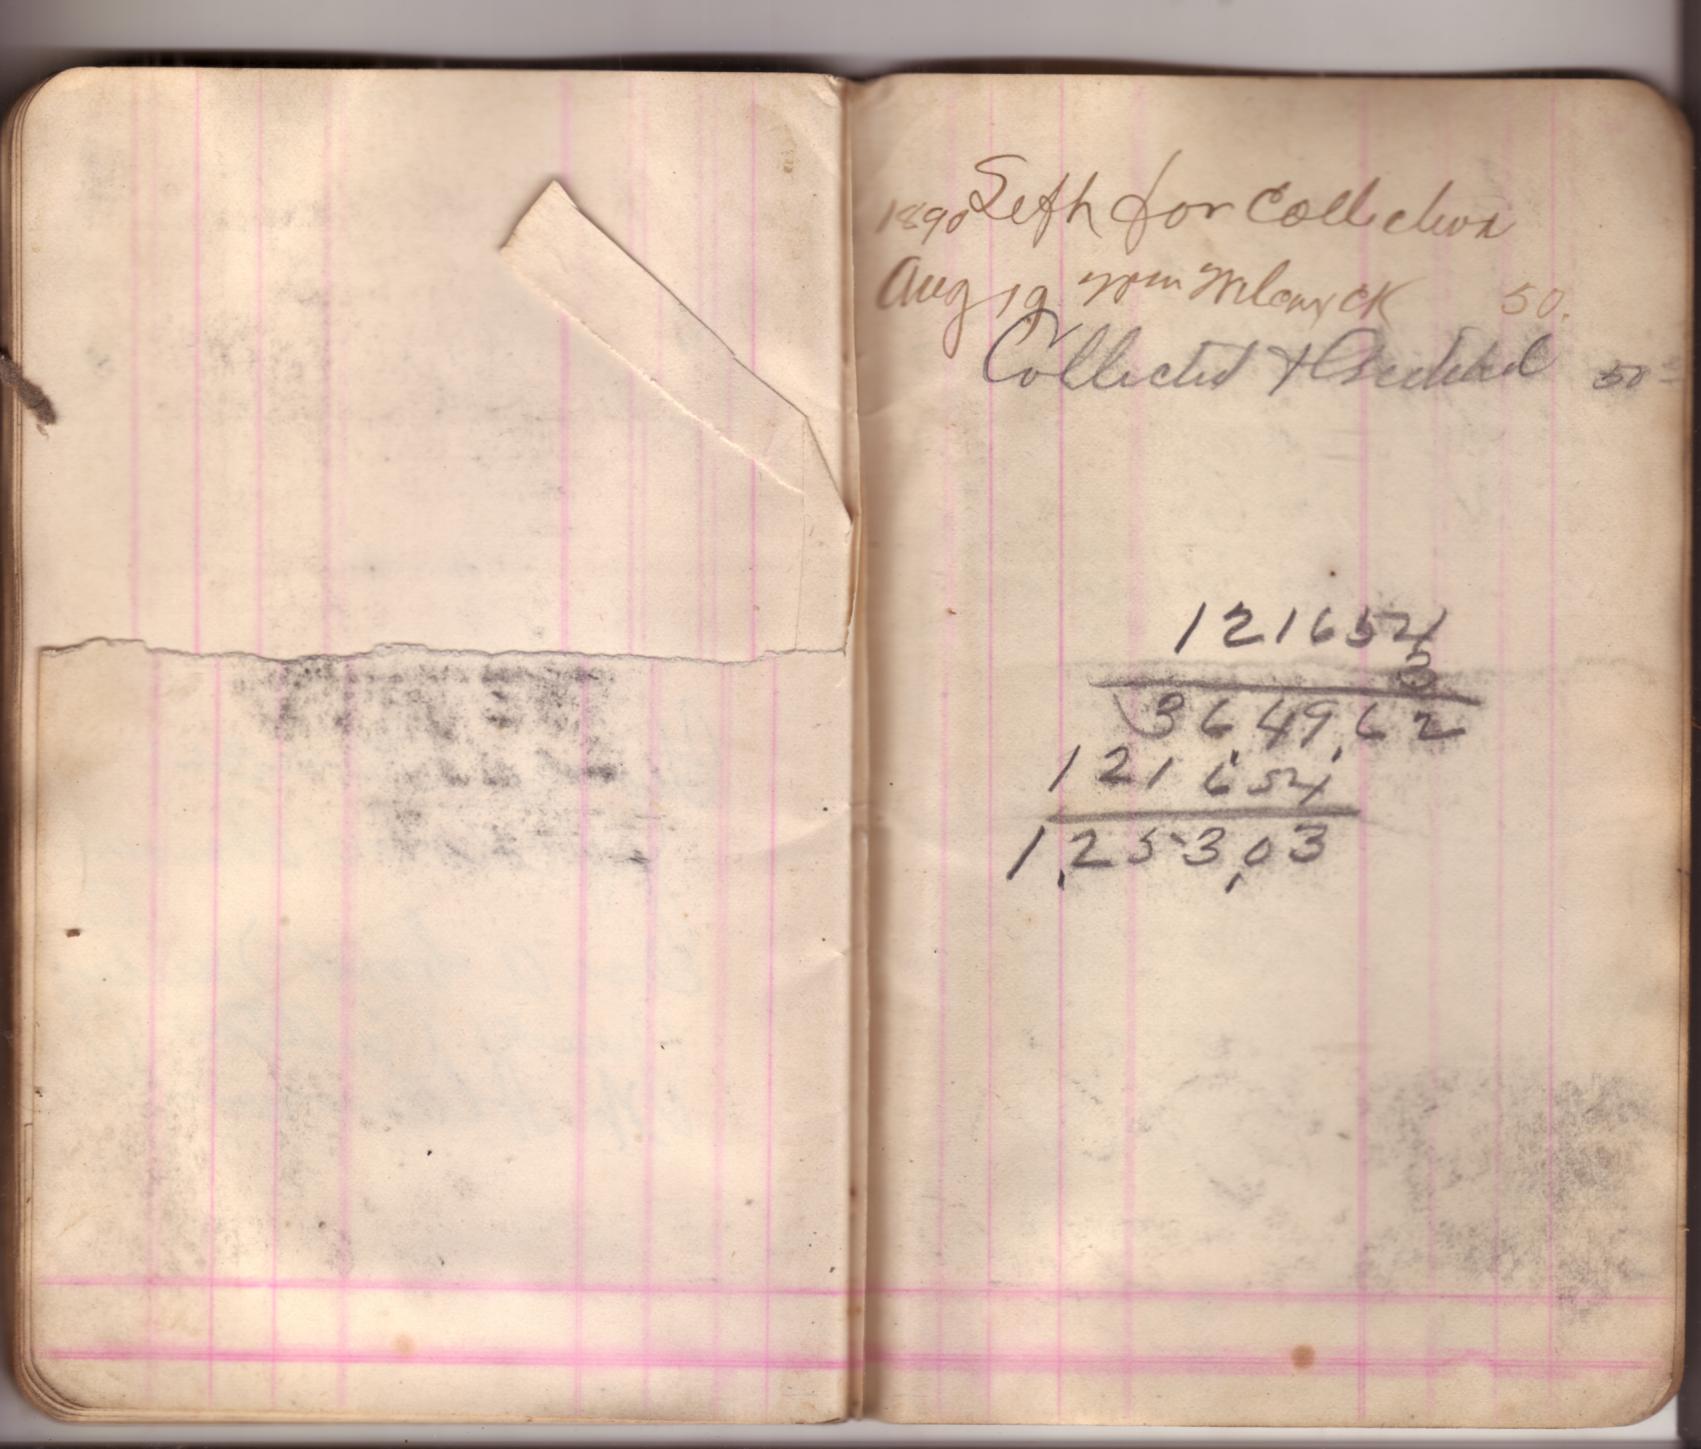 1890 Left for Collection
Aug 19 Wm 50.
Collected & Credited 50
121654
3
364962
121654
1,253,03